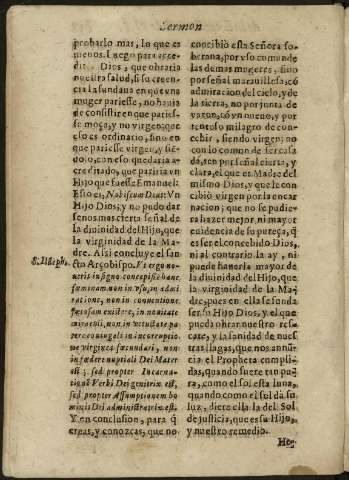 Sermon
probarlo mas, lo que es
menos. Luego para acre
dit Dios, que obraria
nuestra salud, si su creen
cia la fundaua en que vna
muger pariesse, no hauia
de consistir en que paries-
se moça, y no virgen; que
esso es ordinario, sino en
que pariesse virgen, y sie
do lo, con esso quedaria a-
creditado, que pariria vn
Hijo que fuesse Emanuel:
Esto es, Nobiscum Deus: Vn
Hijo Dios; y no pudo dar
señas mas cierta señal de
la diuinidad del Hijo, que
la virginidad de la Ma-
dre. Assi concluye el san-
S. Ildefh. cto Arçobispo. Vt ergo no-
ueris insigno concepisse hanc
fæminam, non in vsu, in admi
ratione, non in conuentione
factosam existere, in nouitate
mirabili, non in vetustate pa
ter coniugali, in incorruptio
ne virginea fœcundari, non
in fœdere nuptiali Dei Mater
est; sed propter Incarna-
tionali Verbi Dei genitrix est,
sed propter Assumptionem ho
minis Dei administratrix est.
Y en conclusion, para q̃
creas, y conozcas, que no
concibiò esta Señora so-
berana, por vso comun de
las demas mugeres, sino
por señal marauillosa, cõ
admiracion del cielo, y de
la tierra, no por junta de
varon, cõ vn nueuo, y por
tentoso milagro de con-
cebir, siendo virgen; no
con lo comun de ser casa
da, ten por señal cierta, y
clara, el que es Madre del
mismo Dios, y que le con
cibiò virgen por la encar
nacion; que no se pudie-
ra hazer mejor, ni mayor
euidencia de su pureça, q̃
es ser el concebido Dios,
ni al contrario la ay, ni
puede hauerla mayor de
la diuinidad del Hijo, que
la virginidad de la Ma-
dre, pues en ella se funda
ser su Hijo Dios, y el que
pueda obrar nuestro res-
cate, y la sanidad de nues
tras llagas, que nos annũ-
cia el Propheta cumpli-
das, quando fuere tan pu-
ra, como el sol esta luna,
quando como el sol dà su
luz, diere ella la del Sol
de justicia, que es su Hijo,
y nuestro remedio.